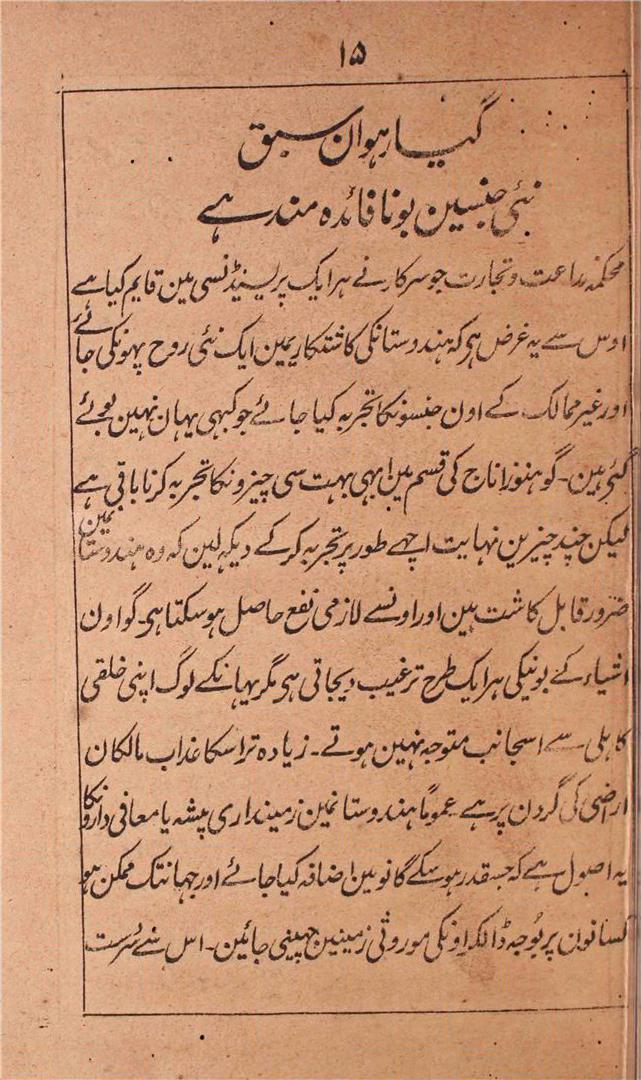 ۱۵
گیارہوان سبق
نئی جنسین بونا فائدہ مند ہے
محکمہ زراعت و تجارت جو سرکار نے ہر ایک پریسیڈنسی مین قایم کیا ہے
اوس سے یہ غرض ہی کہ ہندوستانکی کاشتکاریمین ایک نئی روح پہونکی جائے
اور غیر ممالک کے اون جنسونکا تجربہ کیا جائے جو کبہی یہان نہین بوئے
گئی ہین۔ گو ہنوز اناج کی قسم مین ابہی بہت سی چیزونکا تجربہ کرنا باقی ہے
لیکن چند چیزین نہایت اچہے طور پر تجربہ کرکے دیکہہ لین کہ وہ ہندوستانمین
ضرور قابل کاشت ہین اور اونسے لازمی نفع حاصل ہو سکتا ہی گو اون
اشیاء کے بونیکی ہر ایک طرح ترغیب دیجاتی ہی مگر یہانکے لوگ اپنی خلقی
کاہلی سے اسجانب متوجہ نہین ہوتے۔ زیادہ تر اسکا عذاب مالکان
اراضی کی گردن پر ہے عموماً ہندوستانمین زمینداری پیشہ یا معافی دارونکا
یہ اصول ہے کہ جسقدر ہو سکے گانومین اضافہ کیا جائے اور جہانتک ممکن ہو
کسانون پر بوجہ ڈالکر اونکی موروثی زمینین چہینی جائین۔ اس نئے